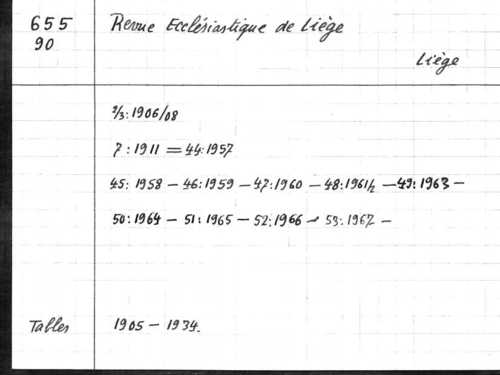 655 Revue Ecclésiastique de Liège
90
Liège
2/3: 1906/08
7: 1911 = 44: 1957
45: 1958 - 46: 1959 - 47: 1960 - 48: 1961/2 - 49: 1963 -
50: 1964 - 51: 1965 - 52: 1966 - 53: 1967 -
Tables 1905 - 1934.